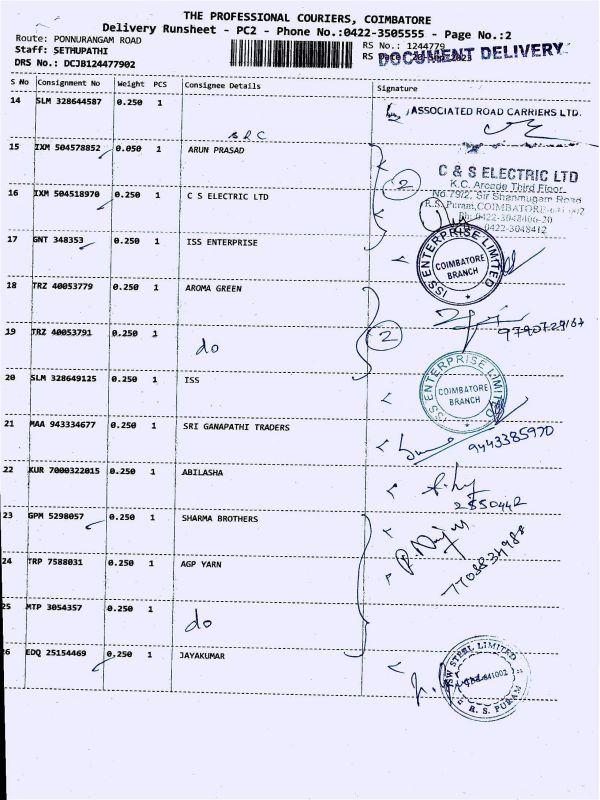 THE PROFESSIONAL COURIERS, COIMBATORE
Delivery Runsheet - PC2 - Phone No.:0422-3505555 - Page No.:2
Route: PONNURANGAM ROAD
Staff: SETHUPATHI
DRS No.: DCJB124477902
RS No.: 1244779
RS Date:
DOCUMENT DELIVERY
S No Consignment No Weight PCS Consignee Details Signature
14 SLM 328644587 0.250 1 ASSOCIATED ROAD CARRIERS LTD.
15 IXM 504578852 0.050 1 ARUN PRASAD
16 IXM 504518970 0.250 1 C S ELECTRIC LTD
2
C & S ELECTRIC LTD
K.C. Arcade Third Floor
No.79/2, Sir Shanmugam Road
R.S. Puram, COIMBATORE
Ph: 0422-3048406-20
0422-3048412
17 GNT 348353 0.250 1 ISS ENTERPRISE
ISS ENTERPRISE LIMITED
COIMBATORE
BRANCH
18 TRZ 40053779 0.250 1 AROMA GREEN
19 TRZ 40053791 0.250 1 do 2
20 SLM 328649125 0.250 1 ISS
ISS ENTERPRISE LIMITED
COIMBATORE
BRANCH
21 MAA 943334677 0.250 1 SRI GANAPATHI TRADERS
9443385970
22 KUR 7000322015 0.250 1 ABILASHA
2550442
23 GPM 5298057 0.250 1 SHARMA BROTHERS
24 TRP 7588031 0.250 1 AGP YARN
25 MTP 3054357 0.250 1 do
26 EDQ 25154469 0.250 1 JAYAKUMAR
JSW STEEL LIMITED
R. S. PURAM